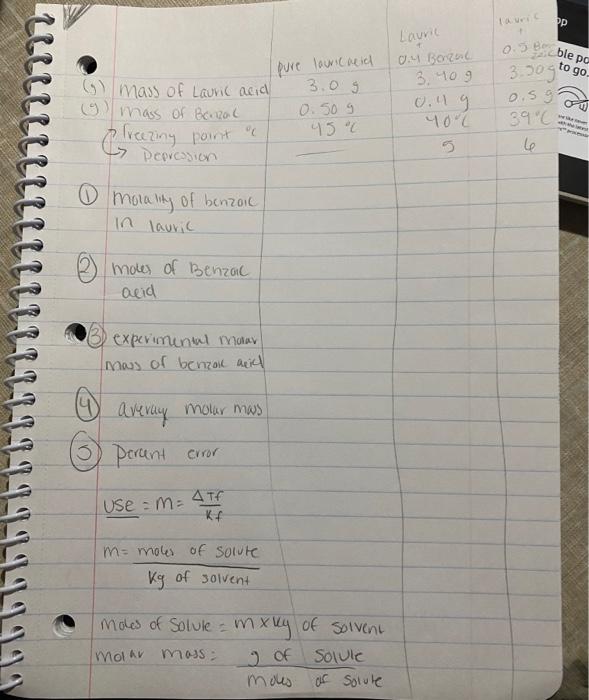 Lauric
+
0.4 Benzoic
lauric
+
0.5 Benzoic
pure lauric acid
(g) Mass of Lauric acid 3.0 g 3.40 g 3.50 g
(g) mass of Benzoic 0.50 g 0.4 g 0.5 g
freezing point °C 45 °C 40°C 39°C
Depression — 5 6
① molality of benzoic
in lauric
② moles of Benzoic
acid
③ experimental molar
mass of benzoic acid
④ average molar mass
⑤ percent error
use = m = ΔTf / Kf
m = moles of solute / Kg of solvent
moles of Solute = m x kg of solvent
molar mass = g of Solute / moles of solute
op
ble po
to go.